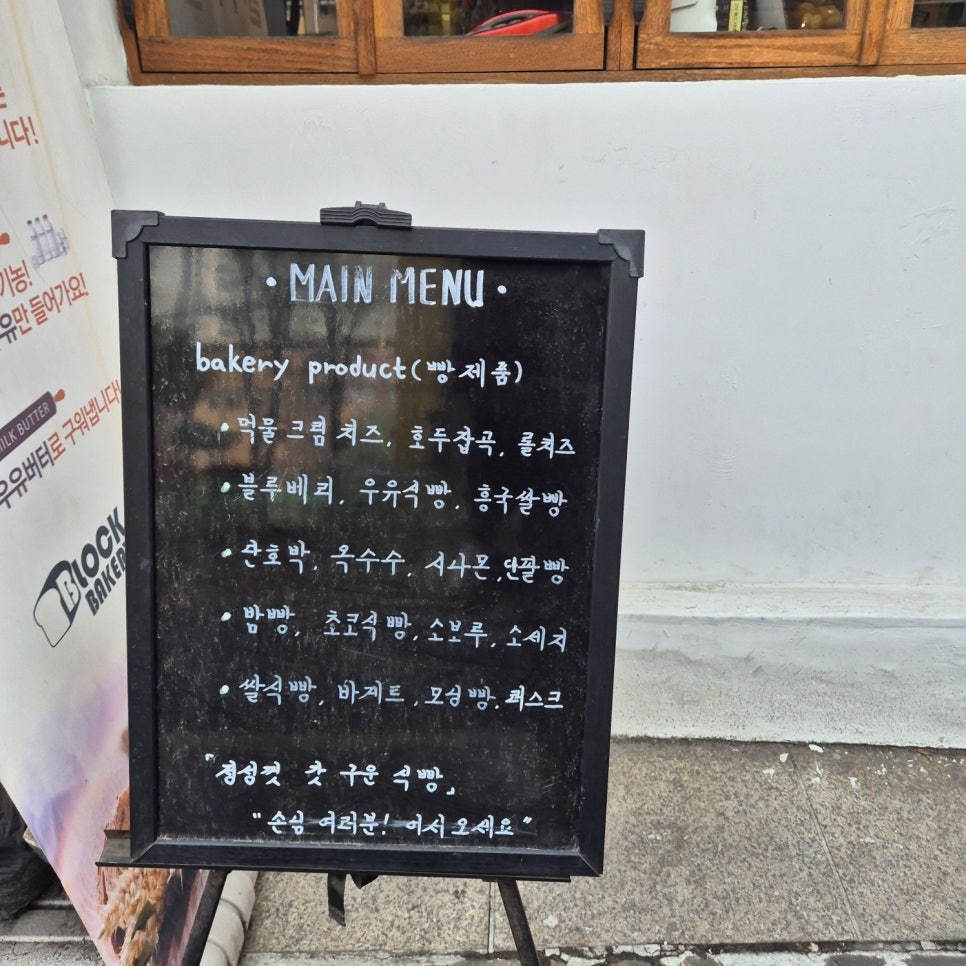 는
니다!
기농!
유만 들어가요!
MILK BUTTER
우유버터로 구워냅니다!
BLOCK
BAKERY
• MAIN MENU •
bakery product(빵제품)
• 먹물크림치즈, 호두잡곡, 롤치즈
• 블루베리, 우유식빵, 흥국쌀빵
• 단호박, 옥수수, 시나몬, 단팥빵
• 밤빵, 초코식빵, 소보루, 소세지
• 쌀식빵, 바게트, 모닝빵, 퀘스크
「정성껏 갓 구운 식빵」
"손님 여러분! 어서오세요"